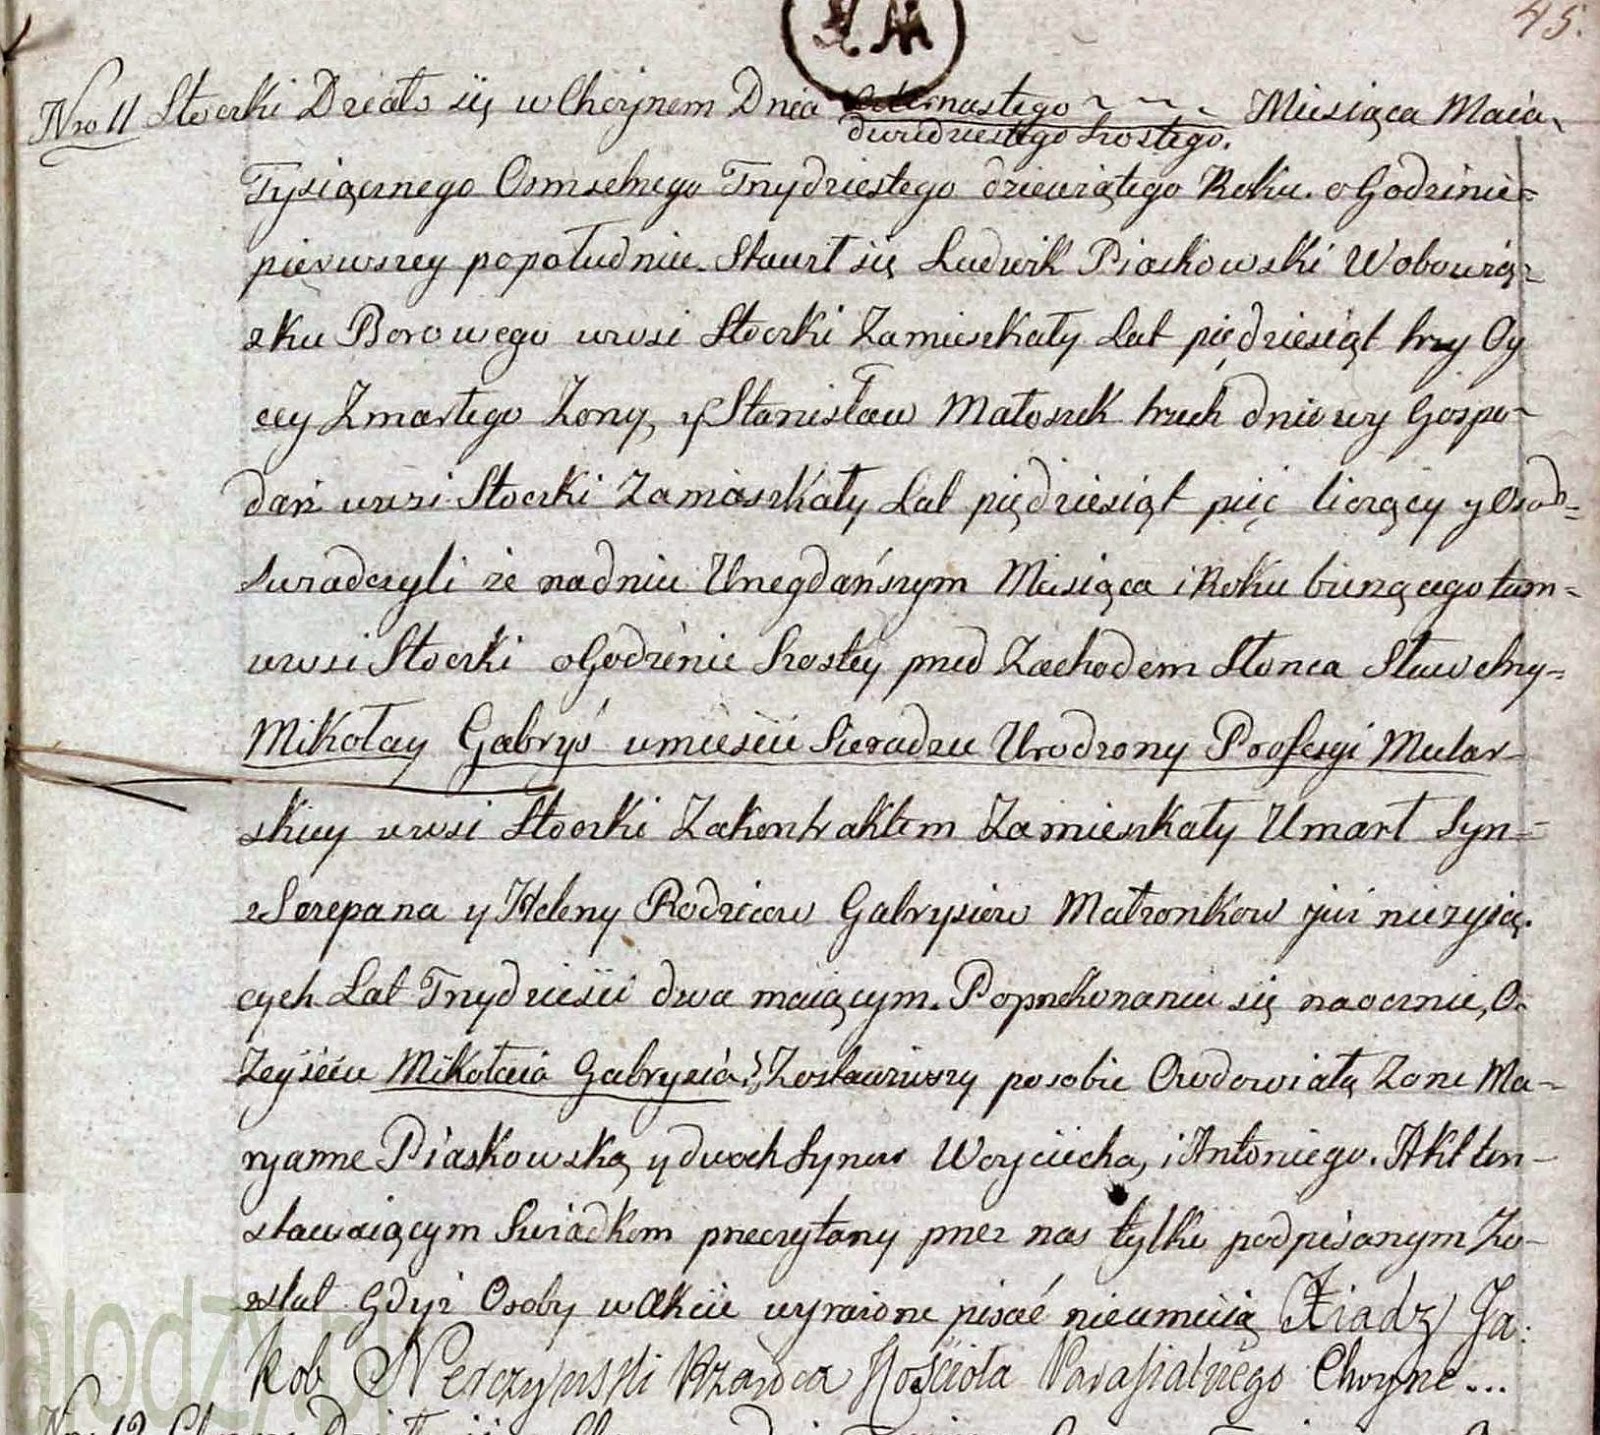 45.
Nro 11 Stoczki Działo się w Choynem Dnia Miesiąca Maia
dwudziestego szostego.
Tysiącznego Osmsetnego Trzydziestego dziewiątego Roku. o Godzinie
pierwszey popołudniu. Stawił się Ludwik Piaskowski W obowią-
zku Borowego wwsi Stoczki Zamieszkały Lat piędziesiąt trzy Oy
cey Zmarłego Zony, y Stanisław Matoszek trzech dniowy Gospo-
darz wwsi Stoczki Zamieszkały Lat piędziesiąt pięć liczący y Oso
swiadczyli że nadniu Unegdańszym Miesiąca i Roku bieżącego tam-
wwsi Stoczki o Godzinie szostey przed Zachodem Słonca
Mikołay Gabryś wmieście Sieradzu Urodzony Profesyi Mular-
skiey wwsi Stoczki Zakontraktem Zamieszkały Umarł Syn-
z Sczepana y Heleny Rodziców Gabrysiow Małżonkow już nieżyią-
cych Lat Trzydzieści dwa maiącym. Poprzekonaniu się naocznie, O-
Zeyściu Mikołaia Gabrysia Zostawiwszy posobie Owdowiałą Zone Ma-
ryanne Piaskowską y dwoch Synow Woyciecha, i Antoniego. Akt ten-
stawaiącym Swiadkom przeczytany przez nas tylko podpisanym Zo-
stał Gdyż Osoby w akcie wyrażone pisać nieumieią Xiądz Ja:
kob Nerczynski Rządca Kościoła Parafialnego Choyne...
Nro 12